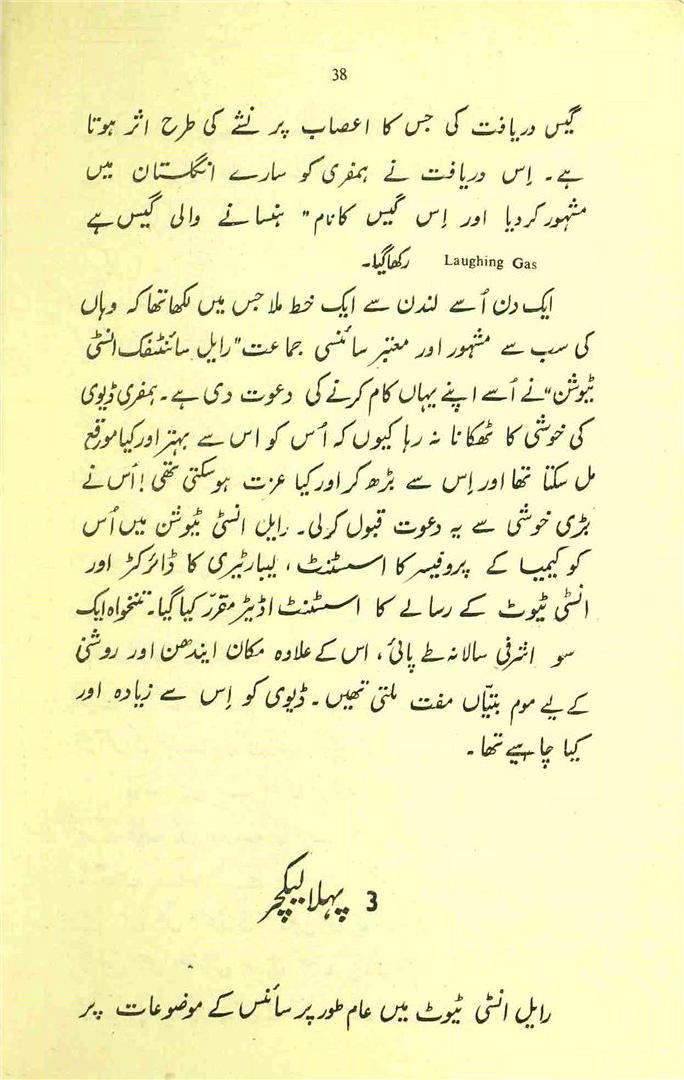 38
گیس دریافت کی جس کا اعصاب پر نشّے کی طرح اثر ہوتا
ہے۔ اِس دریافت نے ہمفری کو سارے انگلستان میں
مشہور کردیا اور اِس گیس کا نام " ہنسانے والی گیس ہے
Laughing Gas رکھا گیا۔
ایک دن اُسے لندن سے ایک خط ملا جس میں لکھا تھا کہ وہاں
کی سب سے مشہور اور معتبر سائنسی جماعت "رایل سائنٹفک انسٹی
ٹیوشن" نے اُسے اپنے یہاں کام کرنے کی دعوت دی ہے۔ ہمفری ڈیوی
کی خوشی کا ٹھکانا نہ رہا کیوں کہ اُس کو اس سے بہتر اور کیا موقع
مل سکتا تھا اور اِس سے بڑھ کر اور کیا عزت ہوسکتی تھی! اُس نے
بڑی خوشی سے یہ دعوت قبول کرلی۔ رایل انسٹی ٹیوشن میں اُس
کو کیمیا کے پروفیسر کا اسسٹنٹ، لیبارٹیری کا ڈائرکٹر اور
انسٹی ٹیوٹ کے رسالے کا اسسٹنٹ اڈیٹر مقرّر کیا گیا۔ تنخواہ ایک
سو اشرفی سالانہ طے پائی، اس کے علاوہ مکان ایندھن اور روشنی
کے لیے موم بتیّاں مفت ملتی تھیں۔ ڈیوی کو اِس سے زیادہ اور
کیا چاہیے تھا۔
3 پہلا لیکچر
رایل انسٹی ٹیوٹ میں عام طور پر سائنس کے موضوعات پر